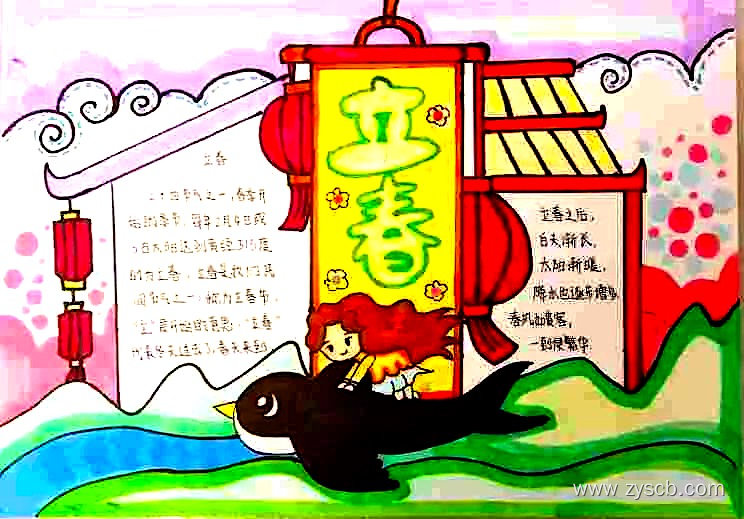 立春
立春
二十四节气之一,春季开
始的季节,每年2月4日或
5日太阳达到黄经315度
时为立春,立春是我们民
间节气之一,称为立春节,
"立"是开始的意思,"立春"
代表冬天过去了,春天来到
立春之后,
白天渐长,
太阳渐暖,
降水也逐步增多,
春机勃勃,
一到很繁华.
www.zyscb.com